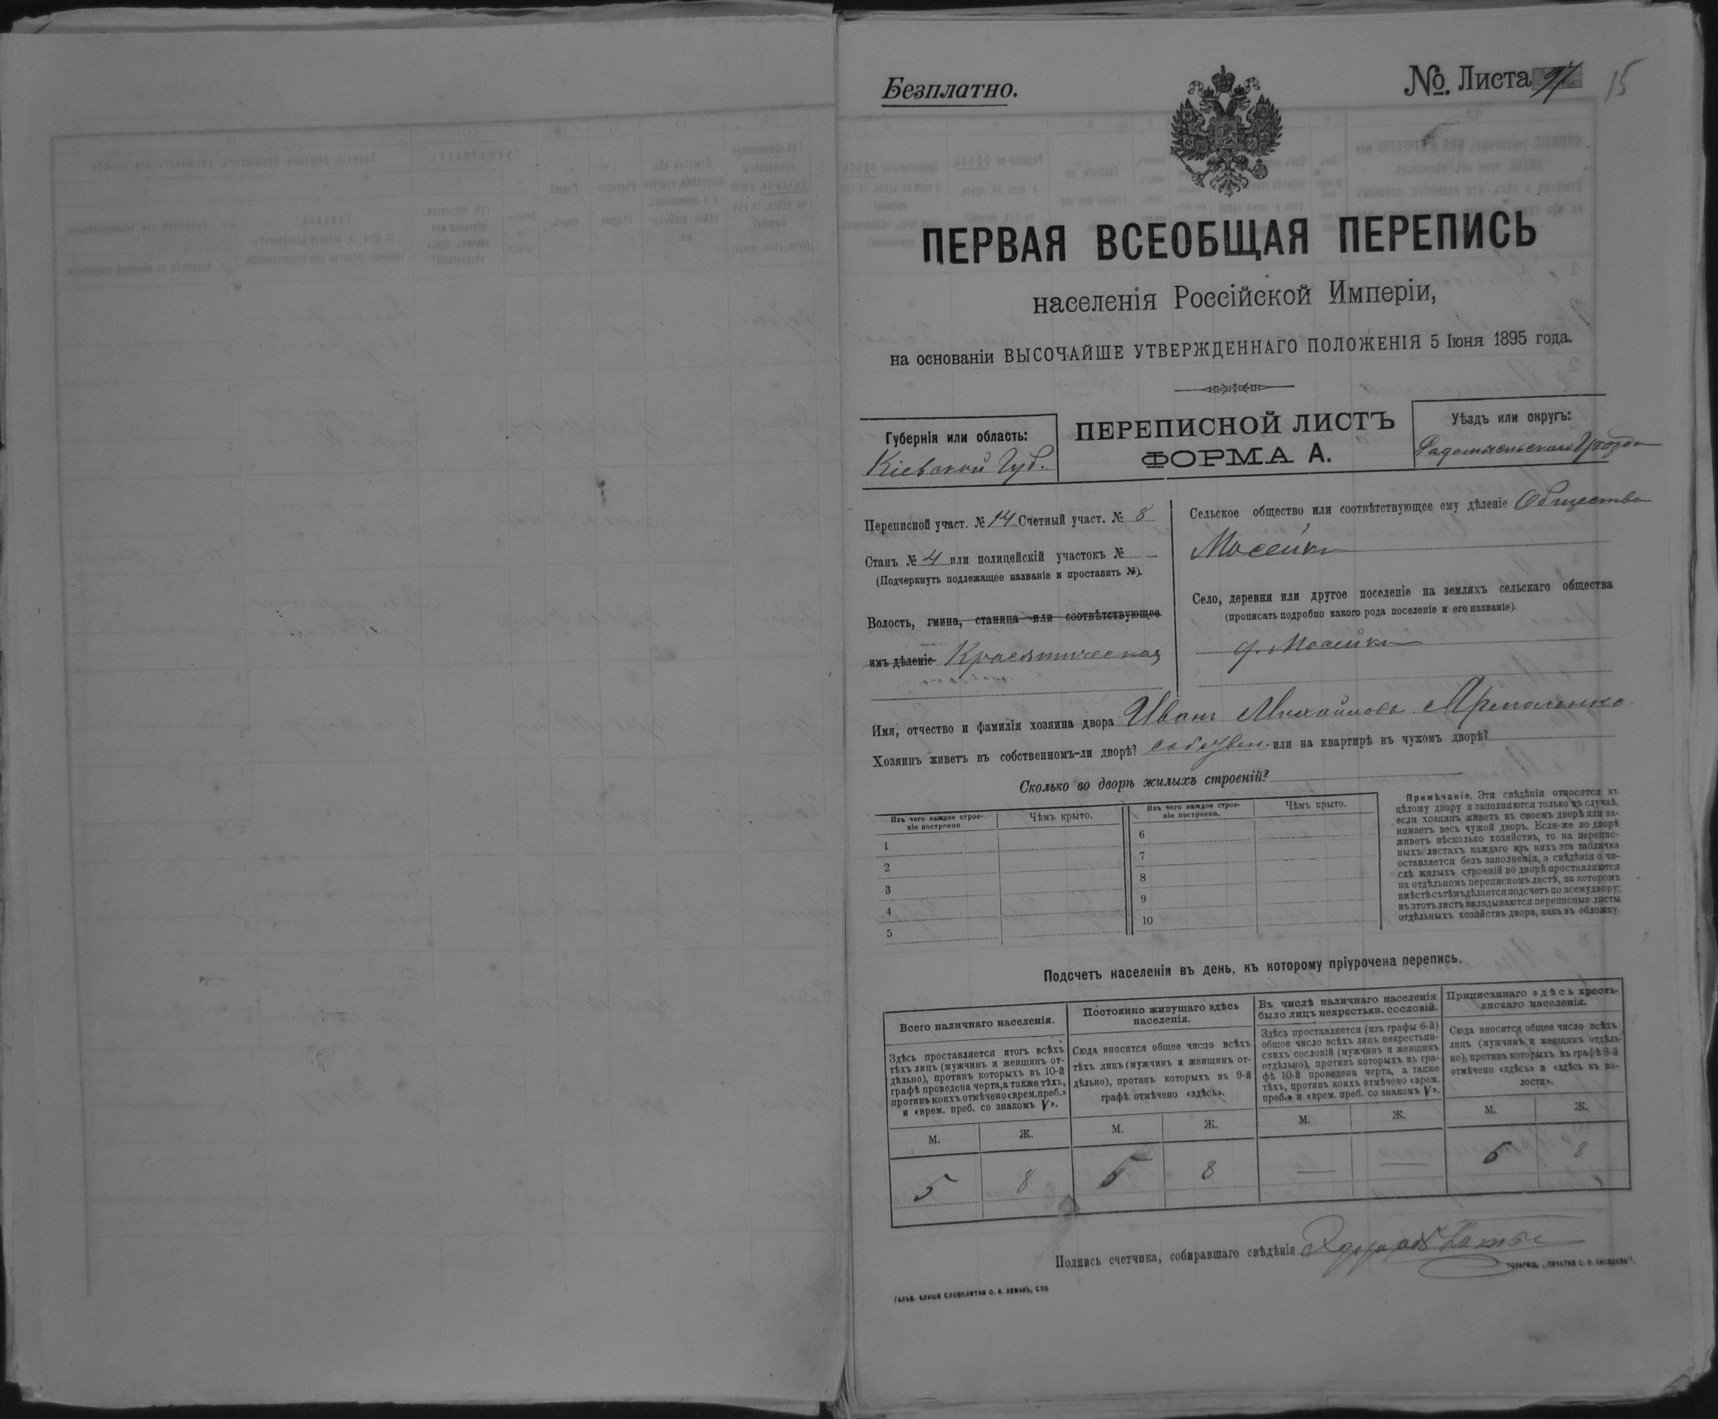 Безплатно.
№ Листа 97 15
ПЕРВАЯ ВСЕОБЩАЯ ПЕРЕПИСЬ
населенія Россійской Имперіи,
на основаніи ВЫСОЧАЙШЕ УТВЕРЖДЕННАГО ПОЛОЖЕНІЯ 5 Іюня 1895 года.
Губернія или область:
Кіевской Губ.
ПЕРЕПИСНОЙ ЛИСТЪ
ФОРМА А.
Уѣздъ или округъ:
Радомысльскаго Уѣзда
Переписной участ. № 14 Счетный участ. № 8
Станъ № 4 или полицейскій участокъ №
(Подчеркнуть подлежащее названіе и проставить №).
Волость, гмина, станица или соотвѣтствующее
имъ дѣленіе Красятическая
Сельское общество или соотвѣтствующее ему дѣленіе Общество
Мосейки
Село, деревня или другое поселеніе на земляхъ сельскаго общества
(прописать подробно какого рода поселеніе и его названіе).
д. Мосейки
Имя, отчество и фамилія хозяина двора Иванъ Михайловъ Ярмоленко
Хозяинъ живетъ въ собственномъ-ли дворѣ? собствен. или на квартирѣ въ чужомъ дворѣ?
Сколько во дворѣ жилыхъ строеній?
Изъ чего каждое строе-
ніе построено
Чѣмъ крыто.
1
2
3
4
5
Изъ чего каждое строе-
ніе построено.
Чѣмъ крыто.
6
7
8
9
10
Примѣчаніе. Эти свѣдѣнія относятся къ
цѣлому двору и заполняются только въ случаѣ,
если хозяинъ живетъ въ своемъ дворѣ или за-
нимаетъ весь чужой дворъ. Если-же во дворѣ
живетъ нѣсколько хозяйствъ, то на перепис-
ныхъ листахъ каждаго изъ нихъ эта табличка
оставляется безъ заполненія, а свѣдѣнія о чи-
слѣ жилыхъ строеній во дворѣ проставляются
на отдѣльномъ переписномъ листѣ, на которомъ
вмѣстѣ съ тѣмъ дѣлается подсчетъ по всему двору;
въ этотъ листъ вкладываются переписные листы
отдѣльныхъ хозяйствъ двора, какъ въ обложку.
Подсчетъ населенія въ день, къ которому пріурочена перепись.
Всего наличнаго населенія.
Здѣсь проставляется итогъ всѣхъ
тѣхъ лицъ (мужчинъ и женщинъ от-
дѣльно), противъ которыхъ въ 10-й
графѣ проведена черта, а также тѣхъ,
противъ коихъ отмѣчено «врем. преб.»
и «врем. преб. со знакомъ V».
М.
Ж.
5
8
Постоянно живущаго здѣсь
населенія.
Сюда вносится общее число всѣхъ
тѣхъ лицъ (мужчинъ и женщинъ от-
дѣльно), противъ которыхъ въ 9-й
графѣ отмѣчено «здѣсь».
М.
Ж.
5
8
Въ числѣ наличнаго населенія
было лицъ некрестьян. сословій.
Здѣсь проставляется (изъ графы 6-й)
общее число всѣхъ лицъ некрестьян-
скихъ сословій (мужчинъ и женщинъ
отдѣльно), противъ которыхъ въ гра-
фѣ 10-й проведена черта, а также
тѣхъ, противъ коихъ отмѣчено «врем.
преб.» и «врем. преб. со знакомъ V».
М.
Ж.
—
—
Приписаннаго здѣсь кресть-
янскаго населенія.
Сюда вносится общее число всѣхъ
лицъ (мужчинъ и женщинъ отдѣль-
но), противъ которыхъ въ графѣ 8-й
отмѣчено «здѣсь» и «здѣсь въ во-
лости».
М.
Ж.
5
8
Подпись счетчика, собиравшаго свѣдѣнія
ГАЛЬВ. КЛИШЕ СЛОВОЛИТНИ О. И. ЛЕМАНЪ, СПБ